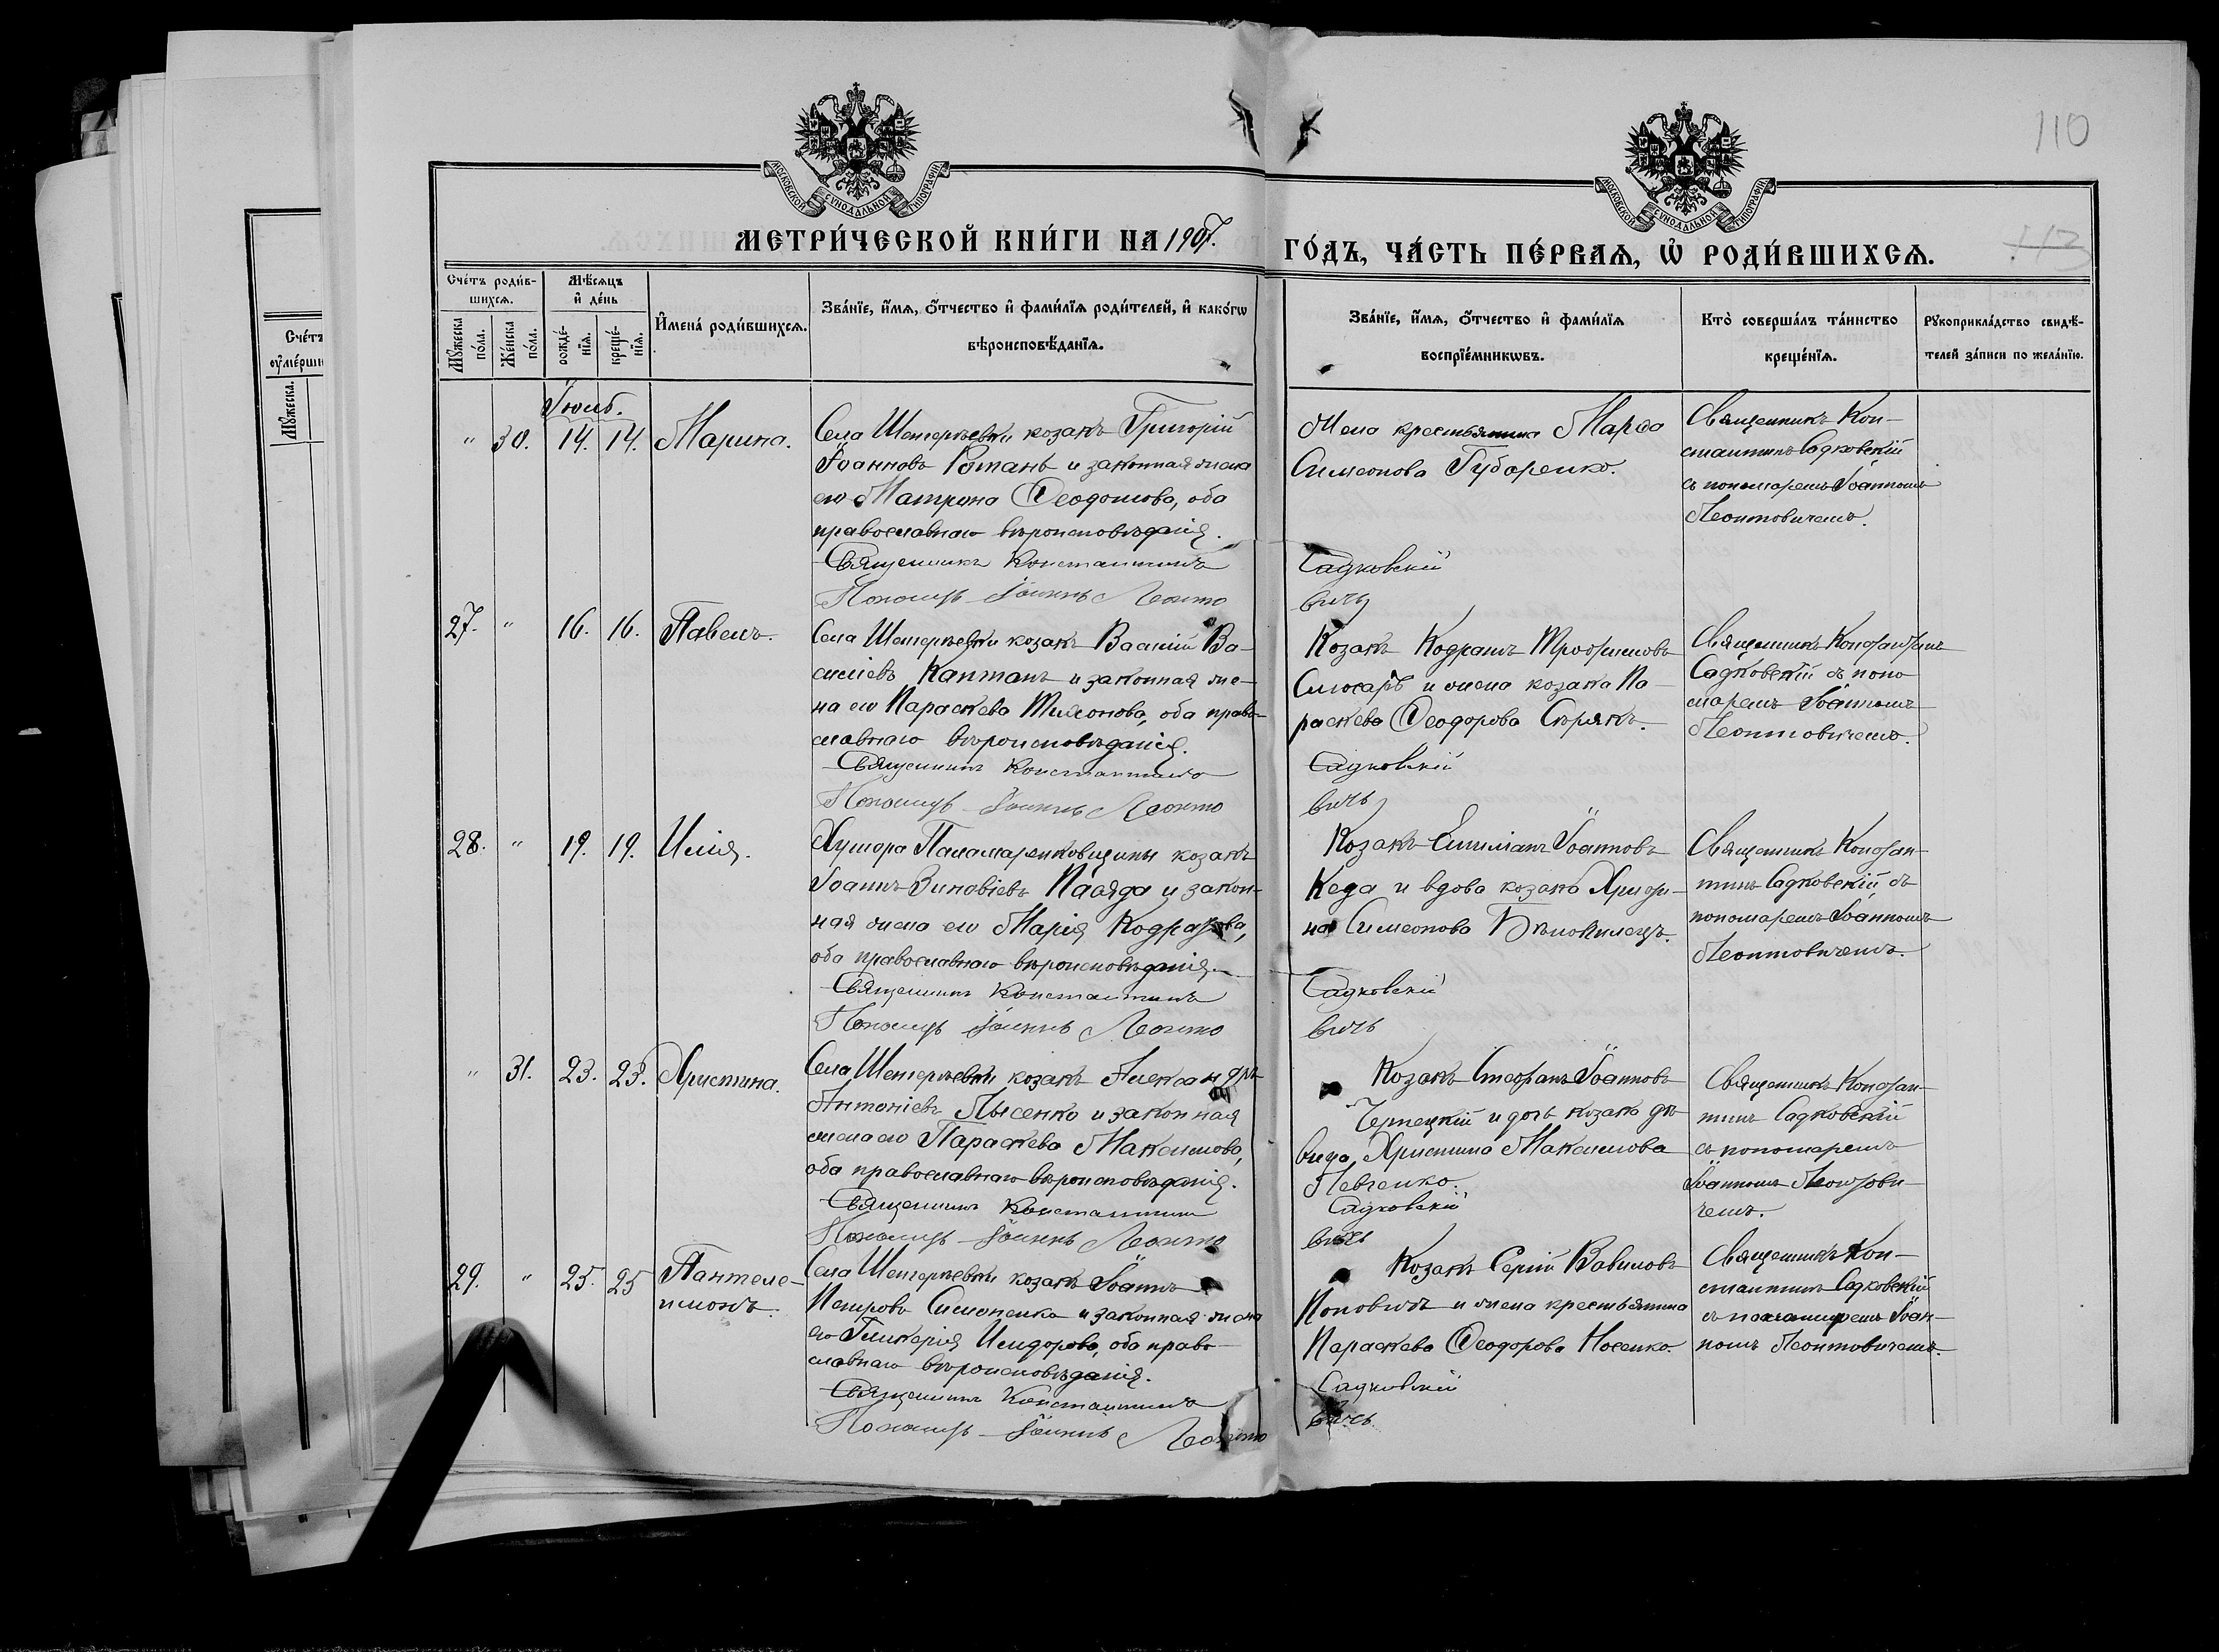 110
МОСКОВСКОЙ СУНОДАЛЬНОЙ ТИПОГРАФІИ
МОСКОВСКОЙ СУНОДАЛЬНОЙ ТИПОГРАФІИ
МЕТРИ́ЧЕСКОЙ КНИ́ГИ НА 1907. ГО́ДЪ, ЧА́СТЬ ПЕ́РВАѦ, Ѡ҆ РОДИ́ВШИХСѦ.
113
Сче́тъ роди́в-
шихсѧ.
Мꙋ́жеска по́ла.
Же́нска по́ла.
Мѣ́сѧцъ
и҆ де́нь
рожде́-
нїѧ.
креще́-
нїѧ.
И҆мена́ роди́вшихсѧ.
Зва́нїе, и҆́мѧ, ѻ҆́тчество и҆ фами́лїѧ роди́телей, и҆ како́гѡ
вѣроисповѣ́данїѧ.
Зва́нїе, и҆́мѧ, ѻ҆́тчество и҆ фами́лїѧ
воспрїе́мникѡвъ.
Кто̀ соверша́лъ та́инство
креще́нїѧ.
Рꙋкоприкла́дство свидѣ́-
телей за́писи по жела́нїю.
Счетъ
оумерши
Мꙋжеска.
" 30. 14. 14. Марина.
козакъ Григорій
Іоанновъ Ротань и законная жена
его Матрона Ѳеодотова, оба
православнаго вѣроисповѣданія.
Священникъ Константинъ Садковскій
Пономарь Іоаннъ Леонтовичъ
Жена крестьянина Марѳа
Симеонова Губаренко.
Священникъ Кон-
стантинъ Садковскій
съ пономаремъ Іоанномъ
Леонтовичемъ.
27. " 16. 16. Павелъ.
козакъ Василій Ва-
силіевъ Каптанъ и законная же-
на его Параскева Тихонова, оба право-
славнаго вѣроисповѣданія.
Священникъ Константинъ Садковскій
Пономарь Іоаннъ Леонтовичъ
Козакъ Кодратъ Трофимовъ
Слюсарь и жена козака Па-
раскева Ѳеодорова Сѣрякъ.
Священникъ Константинъ
Садковскій съ поно-
маремъ Іоанномъ
Леонтовичемъ.
28. " 19. 19. Илія.
Хутора Паламаренковщины козакъ
Іоаннъ Зиновіевъ и закон-
ная жена его Марія Кодратова,
оба православнаго вѣроисповѣданія.
Священникъ Константинъ Садковскій
Пономарь Іоаннъ Леонтовичъ
Козакъ Емиліанъ Іоанновъ
Кеда и вдова козака Христи-
на Симеонова
Священникъ Констан-
тинъ Садковскій съ
пономаремъ Іоанномъ
Леонтовичемъ.
" 31. 23. 23. Христина.
козакъ Александръ
Антоніевъ Лысенко и законная
жена его Параскева Максимова,
оба православнаго вѣроисповѣданія.
Священникъ Константинъ Садковскій
Пономарь Іоаннъ Леонтовичъ
Козакъ Стефанъ Іоанновъ
и дочь козака дѣ-
вица Христина Максимова
Левченко.
Священникъ Констан-
тинъ Садковскій
съ пономаремъ
Іоанномъ Леонтови-
чемъ.
29. " 25. 25 Пантеле-
имонъ.
козакъ Іоаннъ
Петровъ Симоненко и законная жена
его Гликерія Исидорова, оба право-
славнаго вѣроисповѣданія.
Священникъ Константинъ Садковскій
Пономарь Іоаннъ Леонтовичъ
Козакъ Сергій Вавиловъ
Поповичъ и жена крестьянина
Параскева Ѳеодорова Носенко.
Священникъ Кон-
стантинъ Садковскій
съ пономаремъ Іоан-
номъ Леонтовичемъ.